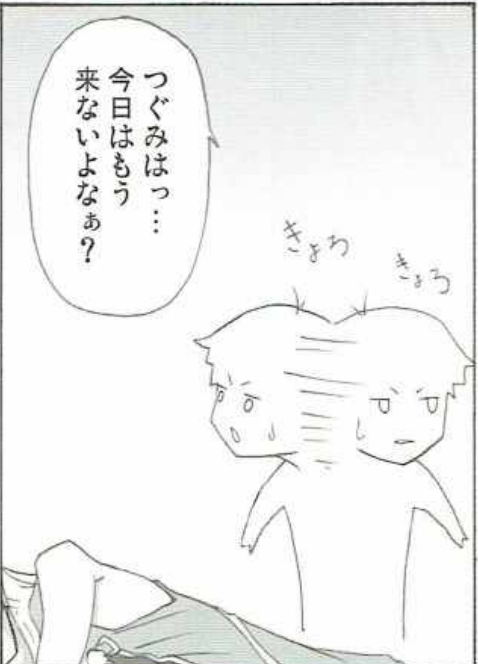 つぐみはっ…
今日はもう
来ないよなぁ？
きょろ
きょろ